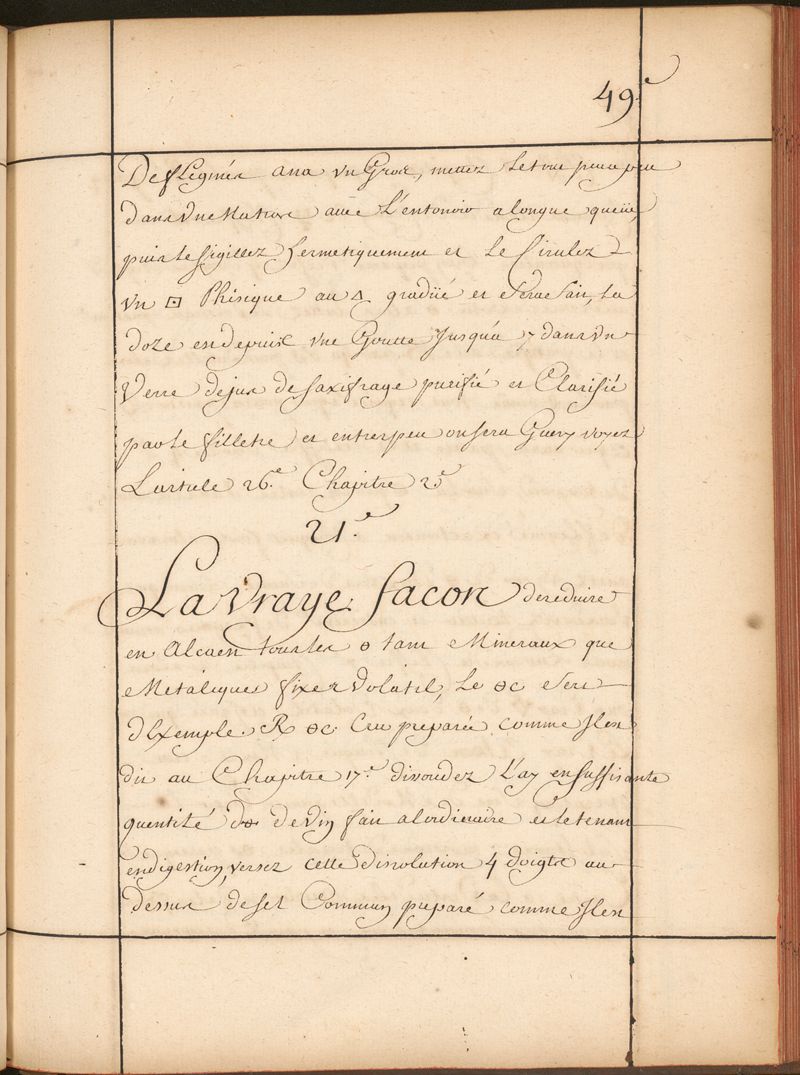 49.e
Deflegmés ana un Gros, mettez le tout peu a peu
dans une Matrase avec L'entonoir a longue queüe,
puis le sigillez hermetiquement et le Cirulez
un ⊡ Phisique au △ gradüé et sera fait, La
doze en depuis une Goutte Jusqu'a 7 dans un
Verre de jus de saxifrage purifié et Clarifié
par le filletre et entrepeu on sera Guery voyez
L'article 26.e Chapitre 2.e
21.e
La Vraye facon de reduire
en Alcaen tous les ɵ tant Mineraux que
Metaliques fixe et Volatil, Le ɵc sert
d'Exemple. R ɵc. Cru preparée comme Il est
dit au Chapitre 17.e divoudez L'ay en suffisante
quentité de de Vin fait a l'ordienaire et le tenant
en digestion, versez cette dissolution 4 doigts au
dessus de sel Commun preparé comme Il est